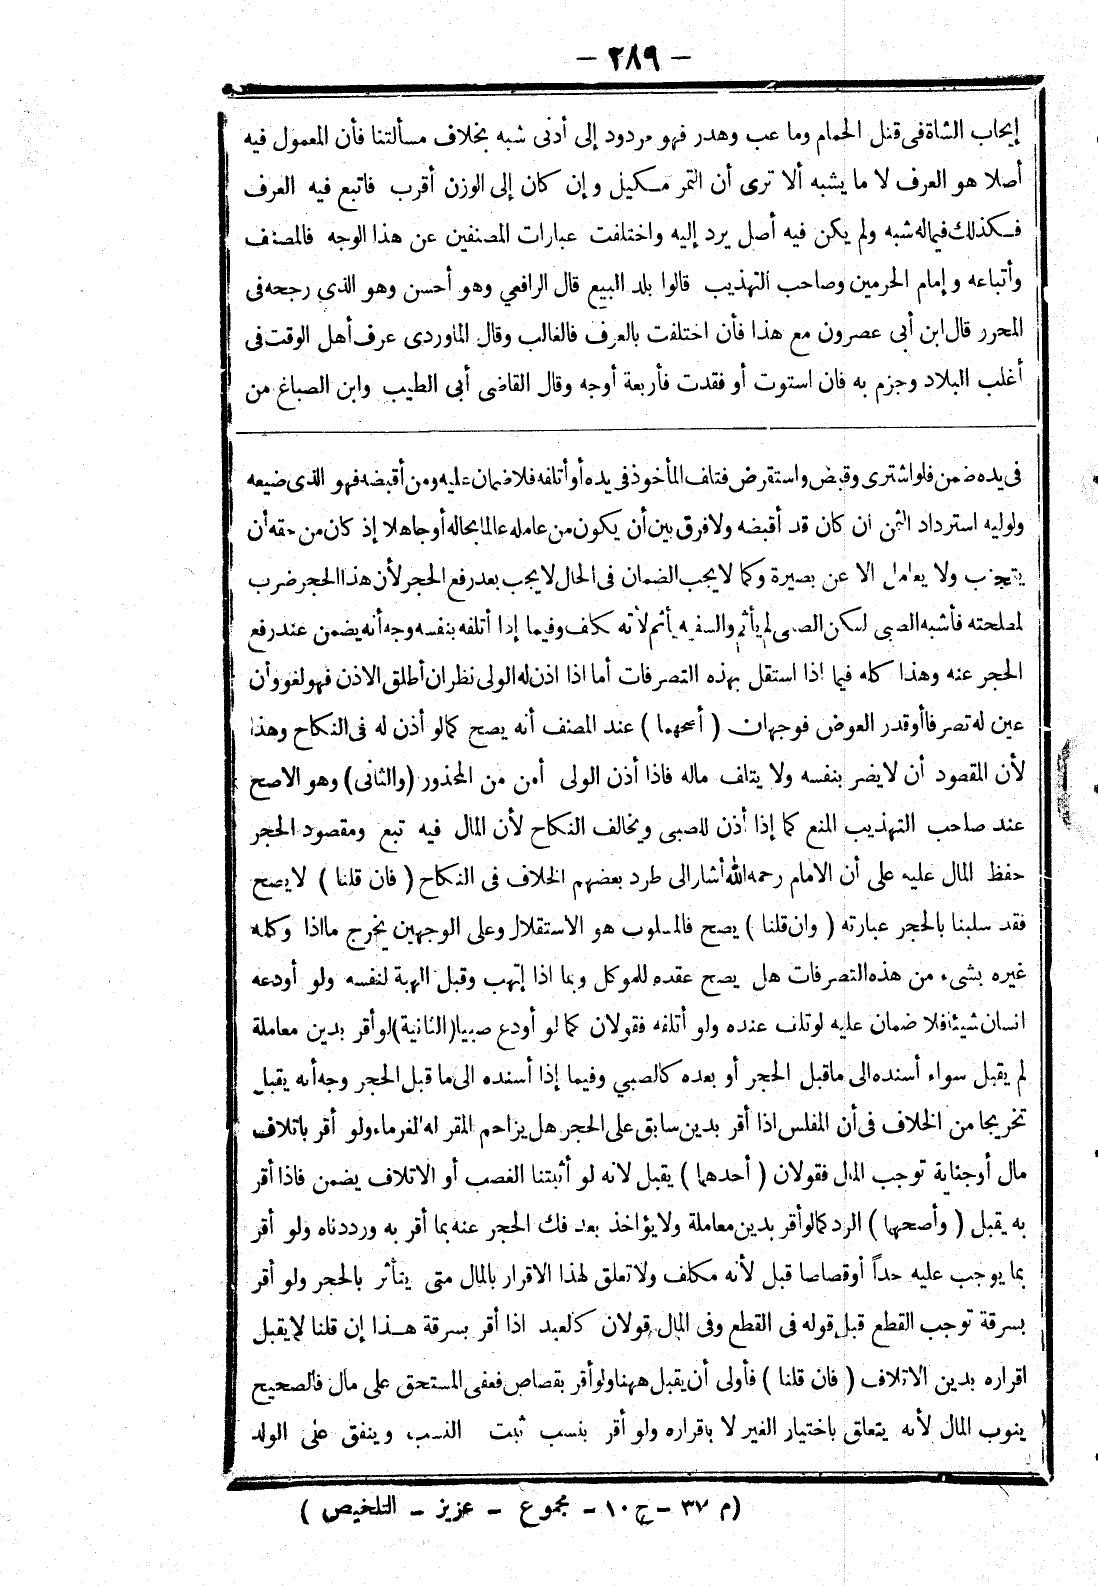 - ٢٨٩ -
إيجاب الشاة فى قتل الحمام وما عب وهدر فهو مردود إلى أدنى شبه بخلاف مسألتنا فأن المعمول فيه
أصلا هو العرف لا ما يشبه ألا ترى أن التمر مكيل وإن كان إلى الوزن أقرب فاتبع فيه العرف
فكذلك فيما له شبه ولم يكن فيه أصل يرد إليه واختلفت عبارات المصنفين عن هذا الوجه فالمصنف
وأتباعه وإمام الحرمين وصاحب التهذيب قالوا بلد البيع قال الرافعي وهو أحسن وهو الذي رجحه فى
المحرر قال ابن أبى عصرون مع هذا فأن اختلفت بالعرف فالغالب وقال الماوردى عرف أهل الوقت فى
أغلب البلاد وجزم به فان استوت أو فقدت فأربعة أوجه وقال القاضى أبى الطيب وابن الصباغ من
فى يده ضمن فلو اشترى وقبض واستقرض فتلف المأخوذ فى يده أو أتلفه فلا ضمان عليه ومن أقبضه فهو الذى ضيعه
ولوليه استرداد الثمن ان كان قد أقبضه ولا فرق بين أن يكون من عامله عالما بحاله أو جاهلا إذ كان من حقه أن
يتجنب ولا يعامل الا عن بصيرة وكما لا يجب الضمان فى الحال لا يجب بعد رفع الحجر لأن هذا الحجر ضرب
لمصلحته فأشبه الصبى لكن الصبى لم يأثم والسفيه يأثم لأنه مكلف وفيما إذا أتلفه بنفسه وجه أنه يضمن عند رفع
الحجر عنه وهذا كله فيما اذا استقل بهذه التصرفات أما اذا اذن له الولى نظر ان أطلق الاذن فهو لغو وأن
عين له تصرفا وقدر العوض فوجهان ( أصحهما ) عند المصنف أنه يصح كما لو أذن له فى النكاح وهذا
لأن المقصود أن لا يضر بنفسه ولا يتلف ماله فاذا أذن الولى أمن من المحذور (والثانى) وهو الاصح
عند صاحب التهذيب المنع كما إذا أذن للصبى ويخالف النكاح لأن المال فيه تبع ومقصود الحجر
حفظ المال عليه على أن الامام رحمه الله أشار الى طرد بعضهم الخلاف فى النكاح ( فان قلنا ) لا يصح
فقد سلبنا بالحجر عبارته ( وان قلنا ) يصح فالمسلوب هو الاستقلال وعلى الوجهين يخرج ما اذا وكله
غيره بشىء من هذه التصرفات هل يصح عقده للموكل وبما اذا إتهب وقبل الهبة لنفسه ولو أودعه
انسان شيئا فلا ضمان عليه لو تلف عنده ولو أتلفه فقولان كما لو أودع صبيا (الثانية) لو أقر بدين معاملة
لم يقبل سواء أسنده الى ما قبل الحجر أو بعده كالصبي وفيما إذا أسنده الى ما قبل الحجر وجه أنه يقبل
تخريجا من الخلاف فى أن المفلس اذا أقر بدين سابق على الحجر هل يزاحم المقر له الغرماء ولو أقر باتلاف
مال أو جناية توجب المال فقولان ( أحدهما ) يقبل لانه لو أثبتنا الغصب أو الاتلاف يضمن فاذا أقر
به يقبل ( وأصحها ) الرد كما لو أقر بدين معاملة ولا يؤاخذ بعد فك الحجر عنه بما أقر به ورددناه ولو أقر
بما يوجب عليه حداً أو قصاصا قبل لأنه مكلف ولا تعلق لهذا الاقرار بالمال متى يتأثر بالحجر ولو أقر
بسرقة توجب القطع قبل قوله فى القطع وفى المال قولان كالعبد اذا أقر بسرقة هذا إن قلنا لا يقبل
اقراره بدين الاتلاف ( فان قلنا ) فأولى أن يقبل ههنا ولو أقر بقصاص فعفى المستحق على مال فالصحيح
ينوب المال لأنه يتعلق باختيار الغير لا باقراره ولو أقر بنسب ثبت النسب وينفق على الولد
(م ٣٧ - ج ١٠ - مجموع - عزيز - التلخيص )